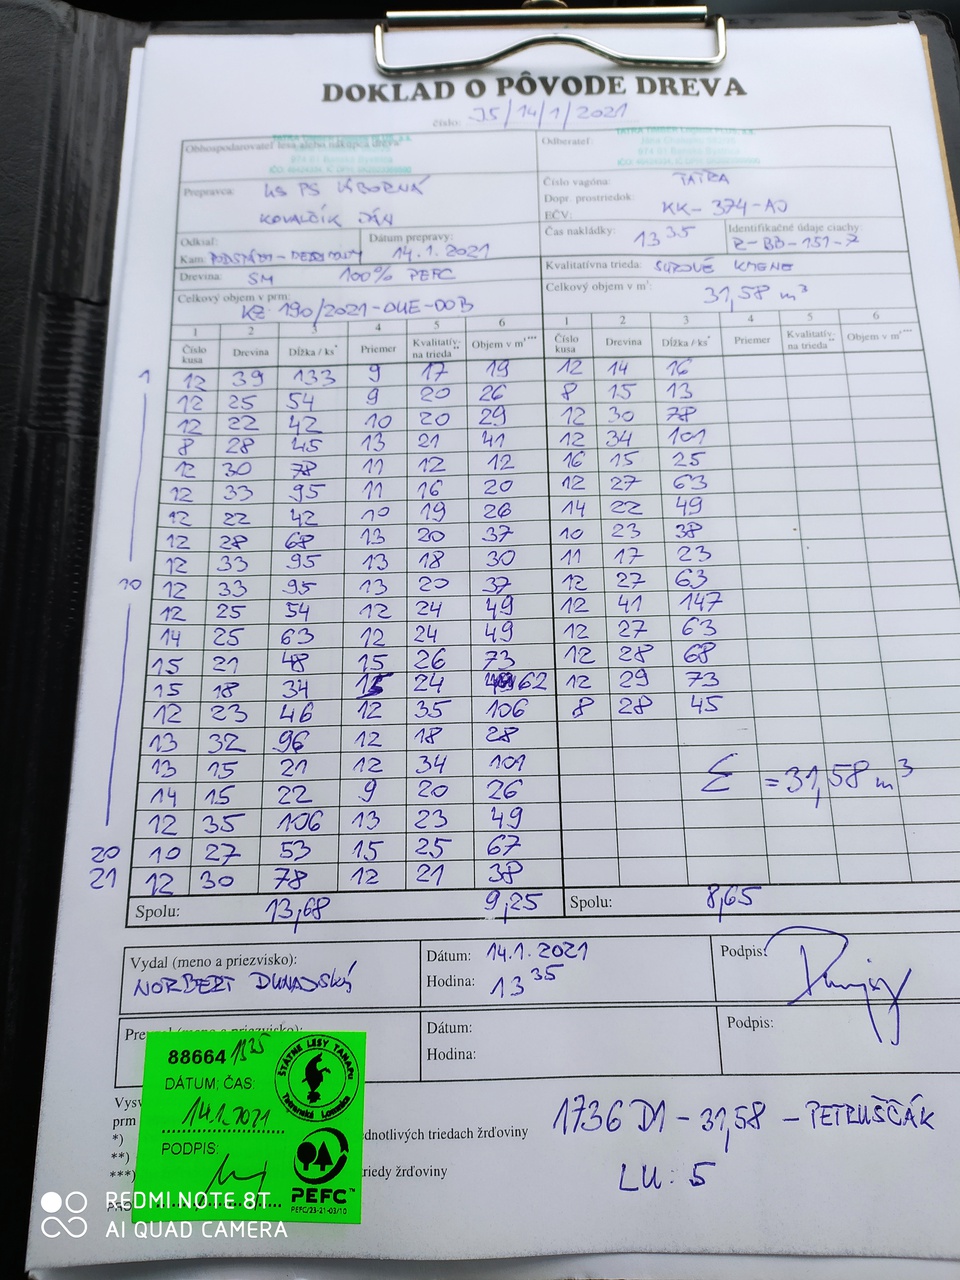 DOKLAD O PÔVODE DREVA
číslo: J5/14/1/2021
Obhospodarovateľ lesa alebo nákupca dreva
Odberateľ:
Prepravca:
KOVALČÍK JÁN
Číslo vagóna: TATRA
Dopr. prostriedok:
EČV: KK-374-AJ
Odkiaľ:
Kam:
Dátum prepravy:
14.1.2021
Čas nakládky: 13 35
Identifikačné údaje ciachy:
Z-BB-151-7
Drevina: SM 100% PEFC
Kvalitatívna trieda: SUROVÉ KMENE
Celkový objem v prm:
KZ 190/2021-OUE-OOB
Celkový objem v m³: 31,58 m³
1 2 3 4 5 6 1 2 3 4 5 6
Číslo kusa Drevina Dĺžka / ks* Priemer Kvalitatív-na trieda** Objem v m³*** Číslo kusa Drevina Dĺžka / ks* Priemer Kvalitatív-na trieda** Objem v m³***
1 12 39 133 9 17 19 12 14 16
12 25 54 9 20 26 8 15 13
12 22 42 10 20 29 12 30 78
8 28 45 13 21 41 12 34 101
12 30 78 11 12 12 16 15 25
12 33 95 11 16 20 12 27 63
12 22 42 10 19 26 14 22 49
12 28 68 13 20 37 10 23 38
12 33 95 13 18 30 11 17 23
10 12 33 95 13 20 37 12 27 63
12 25 54 12 24 49 12 41 147
14 25 63 12 24 49 12 27 63
15 21 48 15 26 73 12 28 68
15 18 34 15 24 62 12 29 73
12 23 46 12 35 106 8 28 45
13 32 96 12 18 28
13 15 21 12 34 101
Σ = 31,58 m³
14 15 22 9 20 26
12 35 106 13 23 49
20 10 27 53 15 25 67
21 12 30 78 12 21 38
Spolu: 13,68 9,25 Spolu: 8,65
Vydal (meno a priezvisko):
NORBERT DUNAJSKÝ
Dátum: 14.1.2021
Hodina: 13 35
Podpis:
Dátum:
Hodina:
Podpis:
88664 1335
DÁTUM; ČAS:
14.1.2021
PODPIS:
ŠTÁTNE LESY TANAPu
Tatranská Lomnica
PEFC™
PEFC/23-21-03/10
prm
*)
**)
***)
jednotlivých triedach žrďoviny
triedy žrďoviny
1736 D1 - 31,58 - PETRUŠČÁK
LU: 5
REDMI NOTE 8T
AI QUAD CAMERA